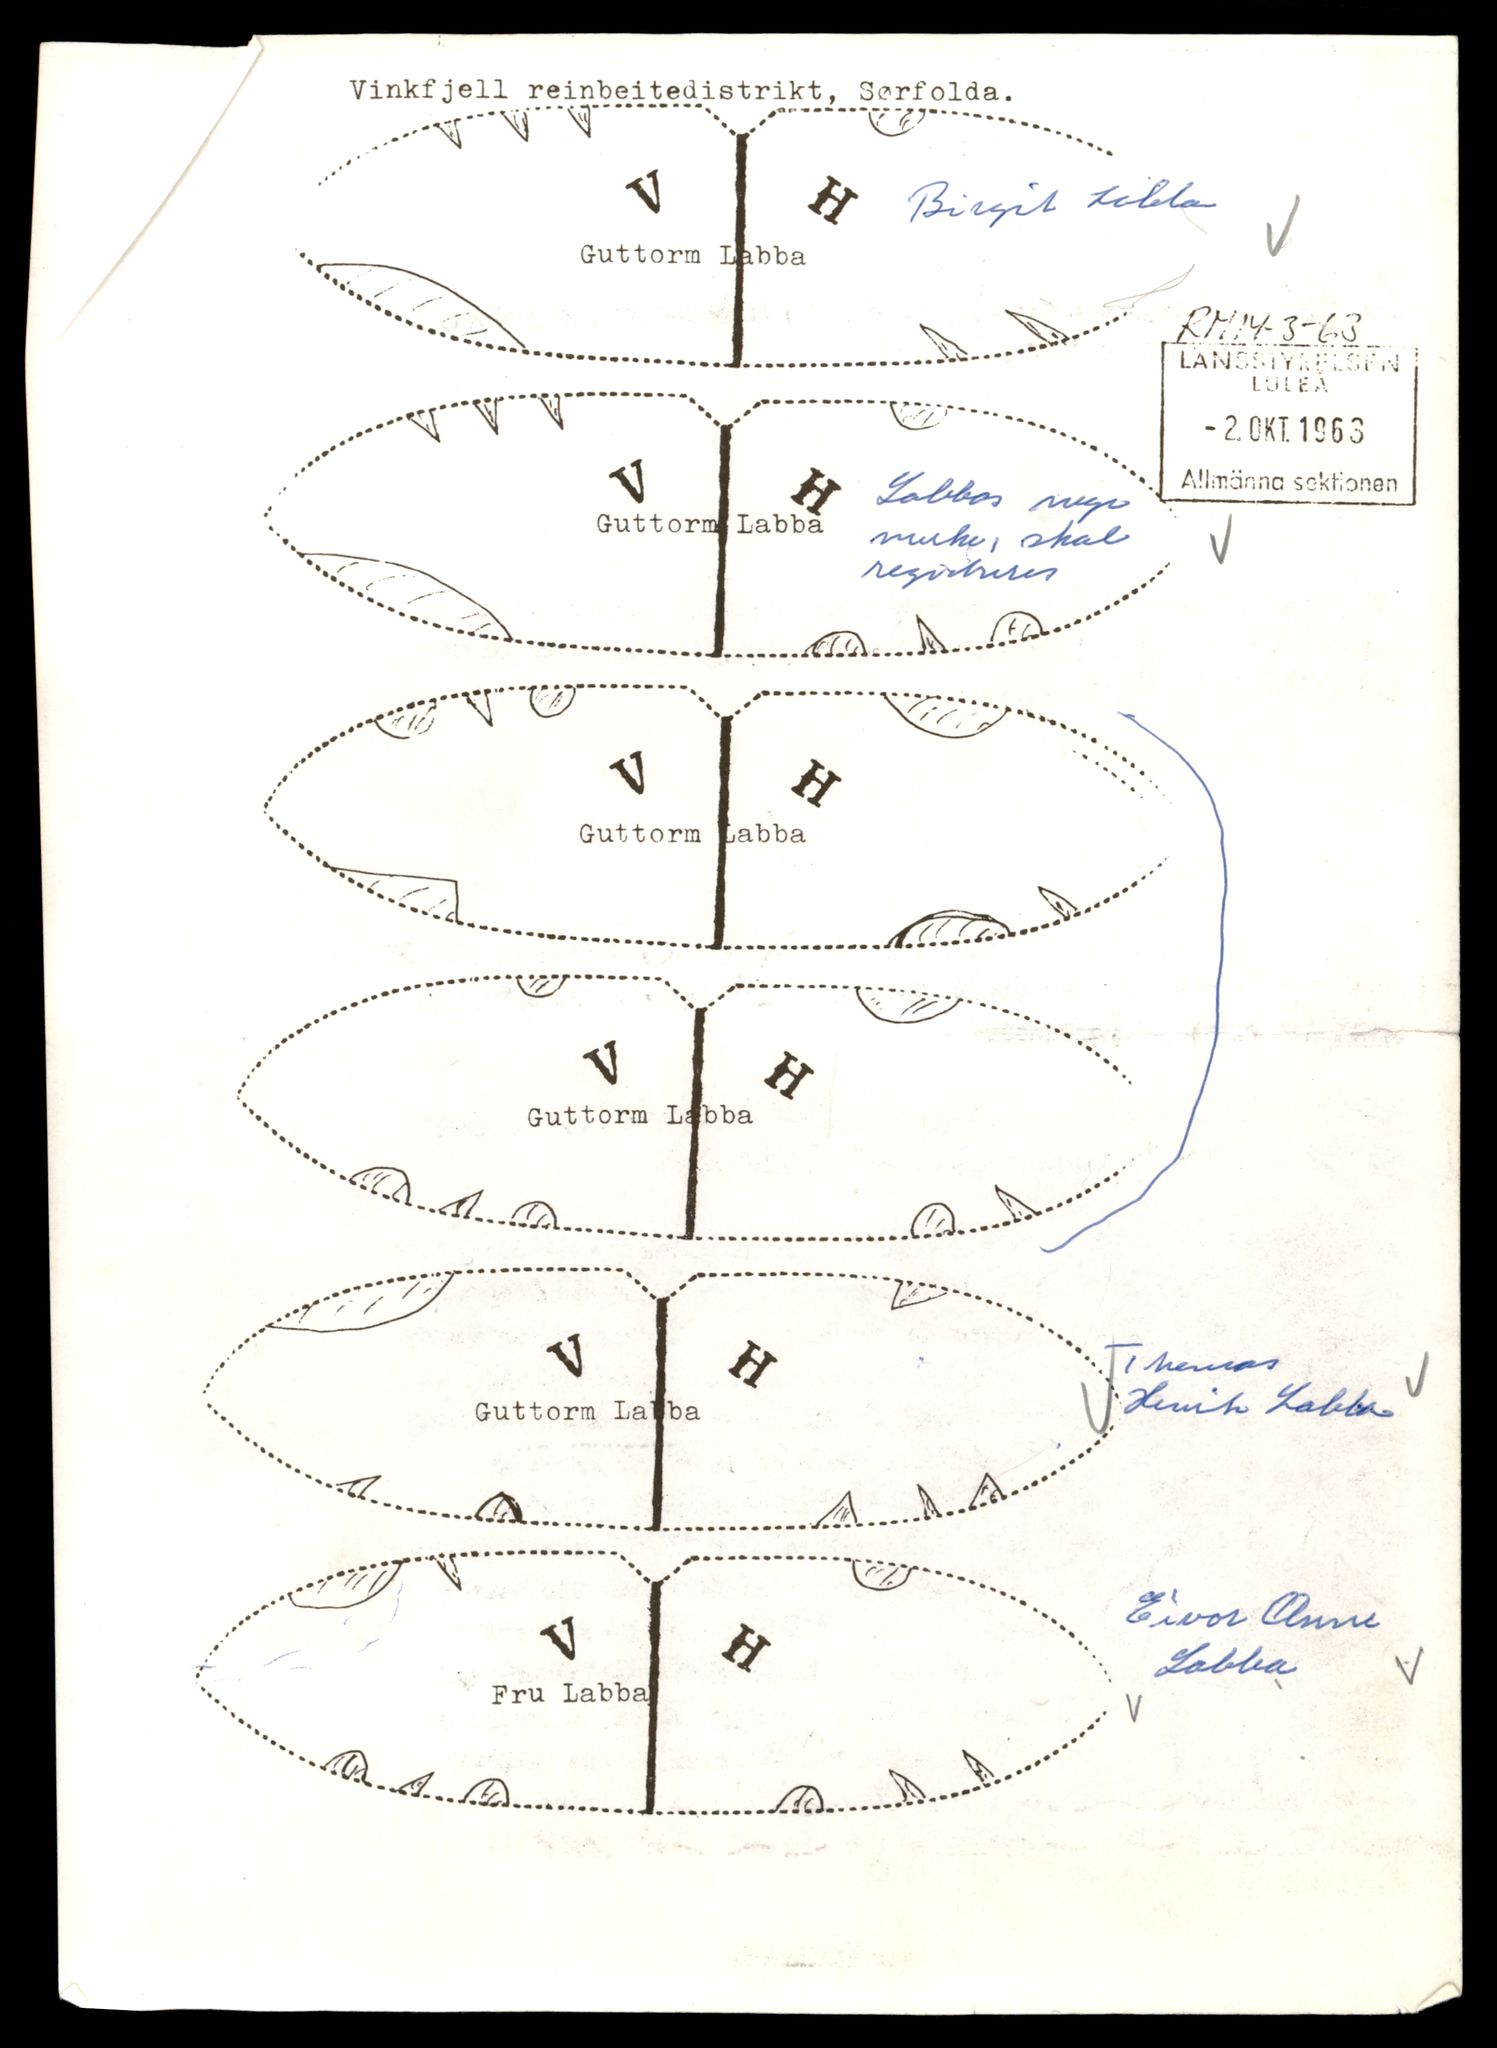 Vinkfjell reinbeitedistrikt, Sørfolda.
V H
Birgit Labba
Guttorm Labba
RM14-3-63
LÄNSSTYRELSEN
LULEÅ
-2.OKT.1963
Allmänna sektionen
V H
Guttorm Labba
Labbas
merke, skal
registreres
V H
Guttorm Labba
V H
Guttorm Labba
V H
Guttorm Labba
Thomas
Henrik Labba
V H
Fru Labba
Eivor Anne
Labba